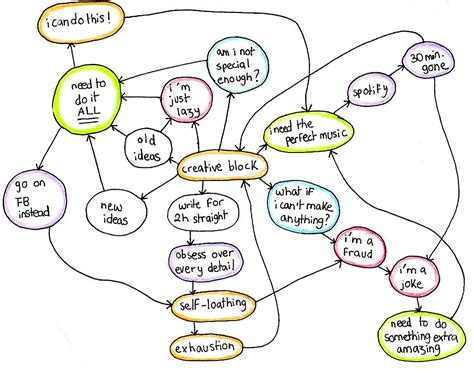 i can do this!
am i not
special
enough?
30 min.
gone
need to
do it
ALL
i'm
just
lazy
spotify
i need the
perfect music
old
ideas
creative block
go on
FB
instead
new
ideas
write for
2h straight
what if
i can't make
anything?
obsess over
every detail
i'm a
fraud
i'm a
joke
self-loathing
need to do
something extra
amazing
exhaustion